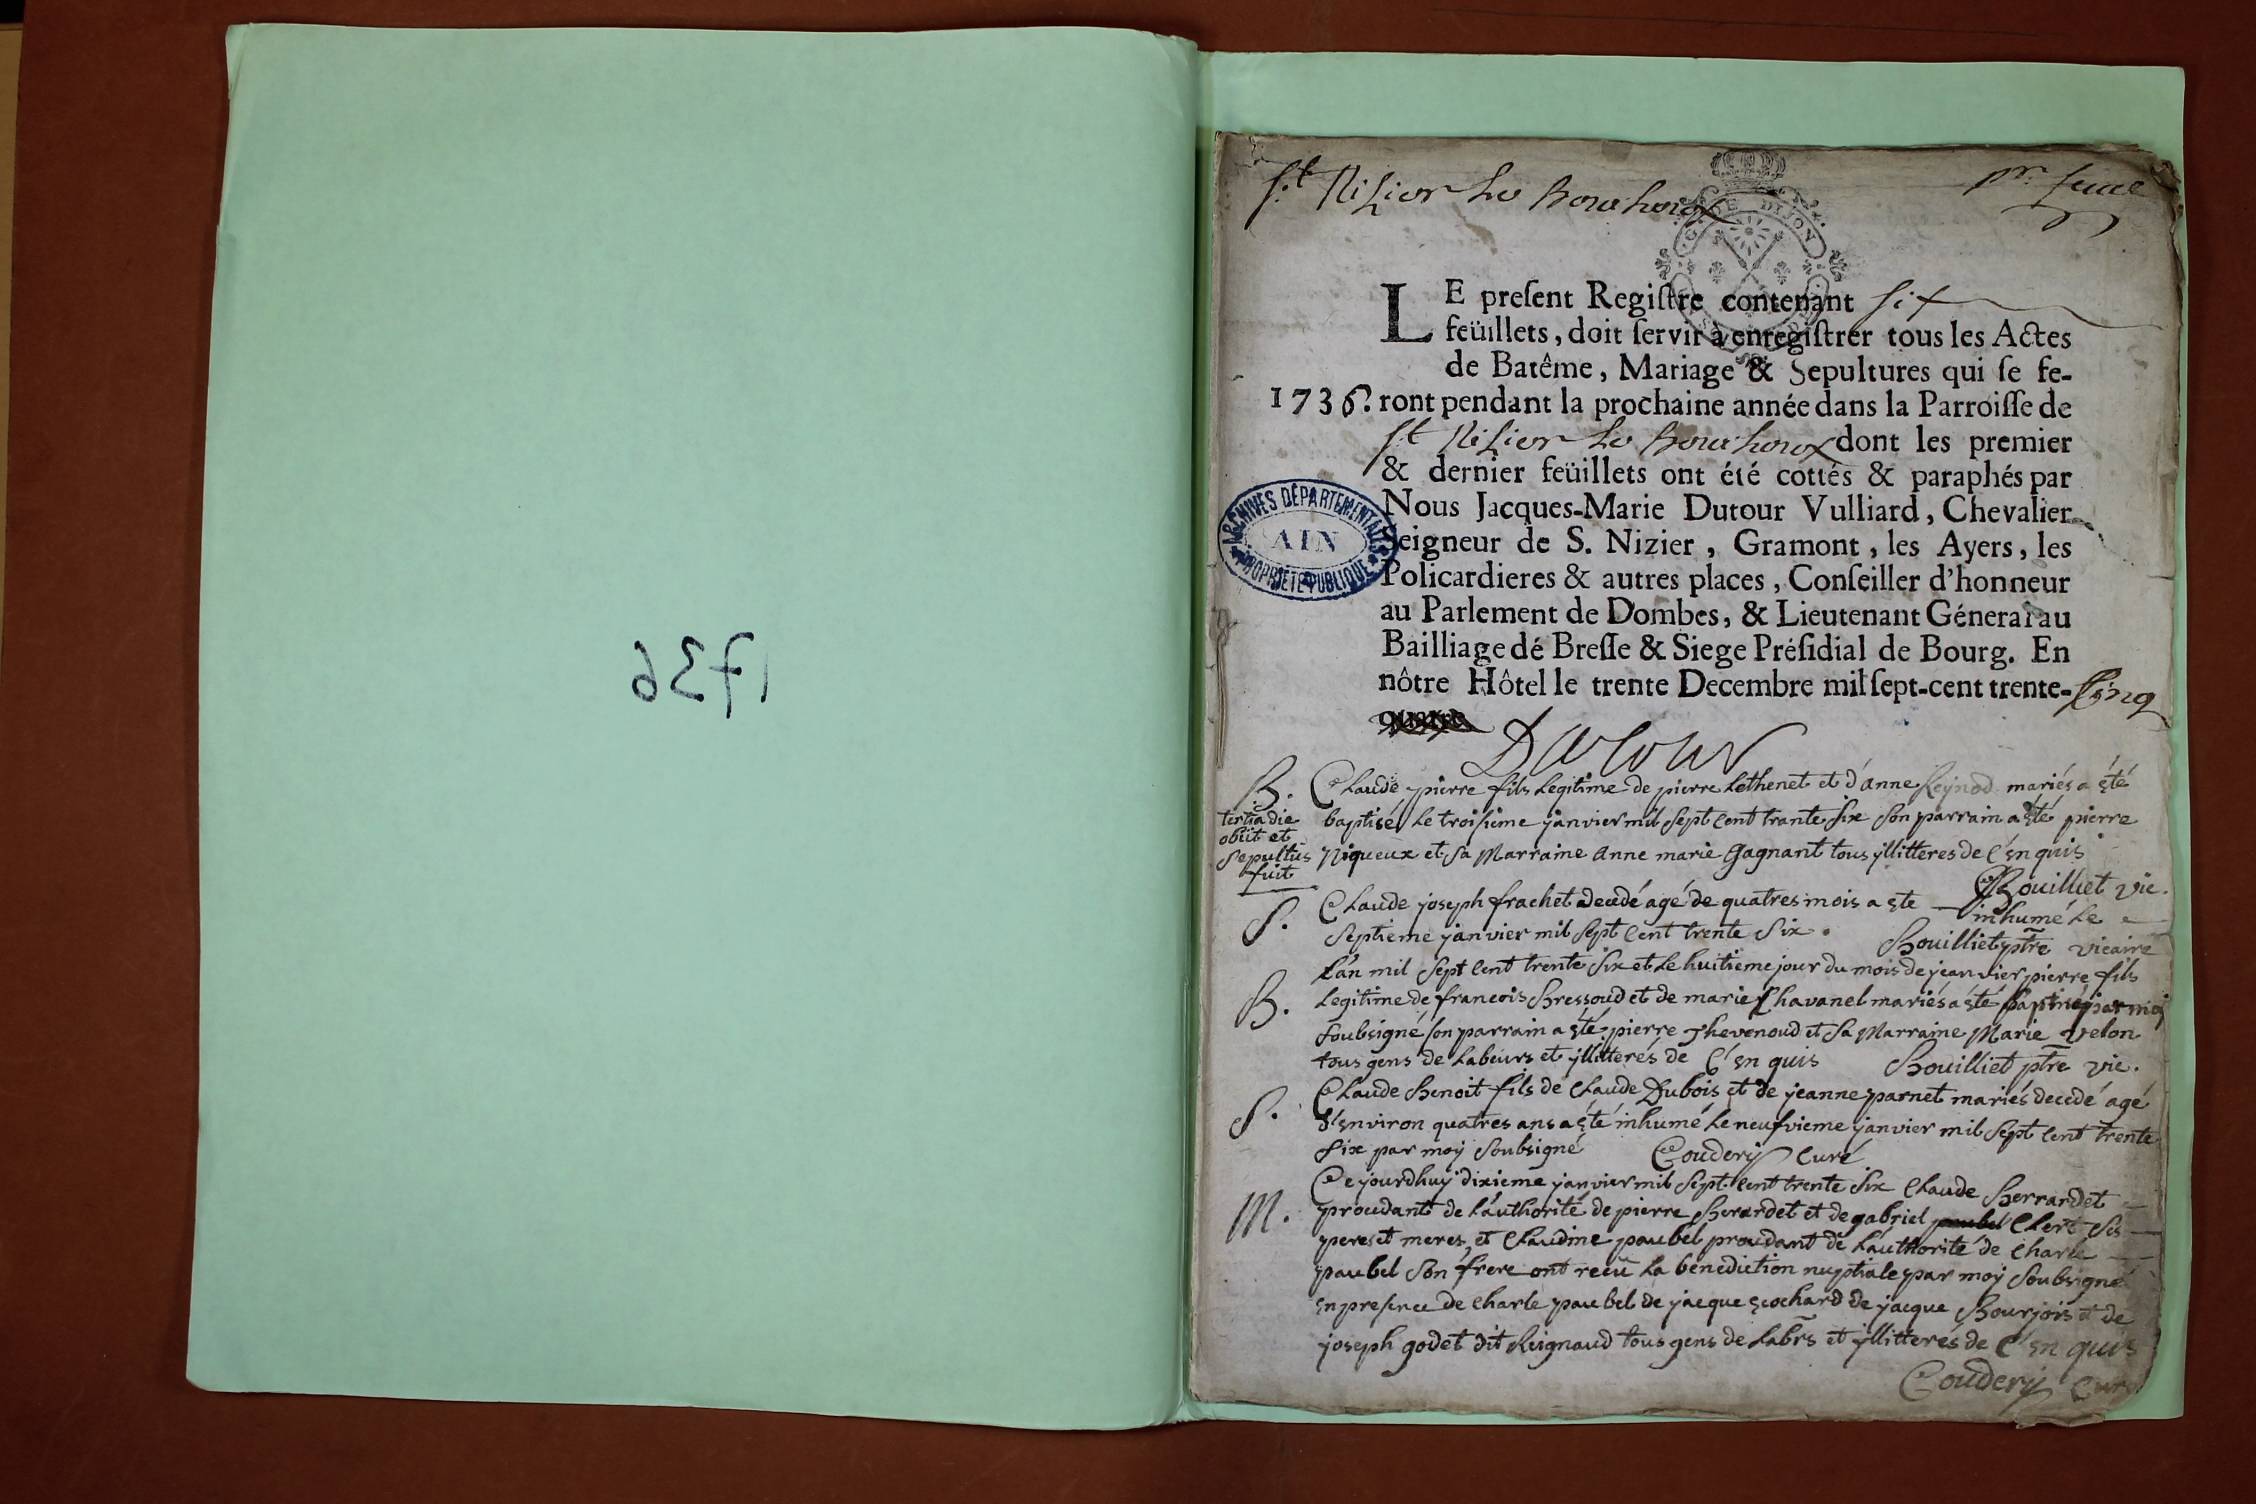 1736
St Nisier Le Bouchoux
pr. feuil
G. DE DIJON
LE preſent Regiſtre contenant six
feüillets, doit ſervir à enregiſtrer tous les Actes
de Batême, Mariage & Sepultures qui ſe fe-
1736. ront pendant la prochaine année dans la Parroiſſe de
St Nisier Le Bouchoux dont les premier
& dernier feüillets ont été cottés & paraphés par
Nous Jacques-Marie Dutour Vulliard, Chevalier
Seigneur de S. Nizier, Gramont, les Ayers, les
Policardieres & autres places, Conſeiller d'honneur
au Parlement de Dombes, & Lieutenant Géneral au
Bailliage dé Breſſe & Siege Préſidial de Bourg. En
nôtre Hôtel le trente Decembre mil ſept-cent trente-Cinq
quatre
Dutour
ARCHIVES DÉPARTEMENTALES
AIN
PROPRIÉTÉ PUBLIQUE
B. Claude pierre fils Legitime de pierre Lethenet et d'anne Reynod mariés a été
baptisé Le troisieme janvier mil sept cent trante six son parrain a été pierre
Niqueux et sa Marraine anne marie Gagnant tous yllitteres de C'enquis
tertia die
obiit et
sepultus
fuit
Bouilliet vic.
S. Claude joseph frachet decedé agé de quatres mois a ete inhumé Le
septieme janvier mil sept cent trente six. Bouilliet ptre vicaire
B. L'an mil sept cent trente six et Le huitieme jour du mois de jeanvier pierre fils
Legitime de francois Bressoud et de marie Chavanel mariés a été baptisé par moi
soubsigné son parrain a été pierre Thevenoud et sa Marraine Marie Velon
tous gens de Labeurs et yllitterés de C'enquis Bouilliet ptre vic.
S. Claude Benoit fils de Claude Dubois et de jeanne parnet mariés decedé agé
d'environ quatres ans a été inhumé Le neufvieme janvier mil sept cent trente
six par moy soubsigné Coudery curé
M. Cejourdhuy dixieme janvier mil sept cent trente six Claude Berrardet
procedant de L'authorité de pierre Berardet et de gabriel paubel Clert ses
peres et meres, et Claudine paubel procedant de L'authorité de Charle
paubel son frere ont reçu La benediction nuptiale par moy soubsigné
en presence de Charle paubel de jacque cochard de jacque Bourjois et de
joseph godet dit Reignaud tous gens de Labrs et yllitterés de C'enquis
Coudery curé